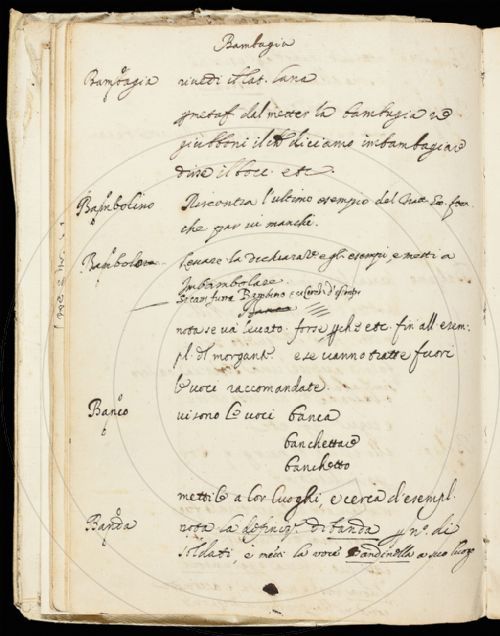 Bambagia
Bambagia riuedi il lat. lana
metaf. dal metter la bambagia ne
giubboni il che diciamo imbambagiare
dice il bocc. etc.
Bambolino Riscontra l'ultimo esempio del
che par vi manchi.
Bambolo Leuare la dechiaraz.e e gli esempi e metti a
Imbambolare
Se caui fuora Bambino
nota se va leuato forse etc. fin all esem-
pl. dl morgante e se vanno tratte fuori
le uoci raccomandate.
Banco vi sono le uoci banca
banchettare
banchetto
mettile a lor luoghi, e cerca d'esempl.
Banda nota la definiz.e di banda p n.o di
soldati, e metti la voce bandinella a suo luogo